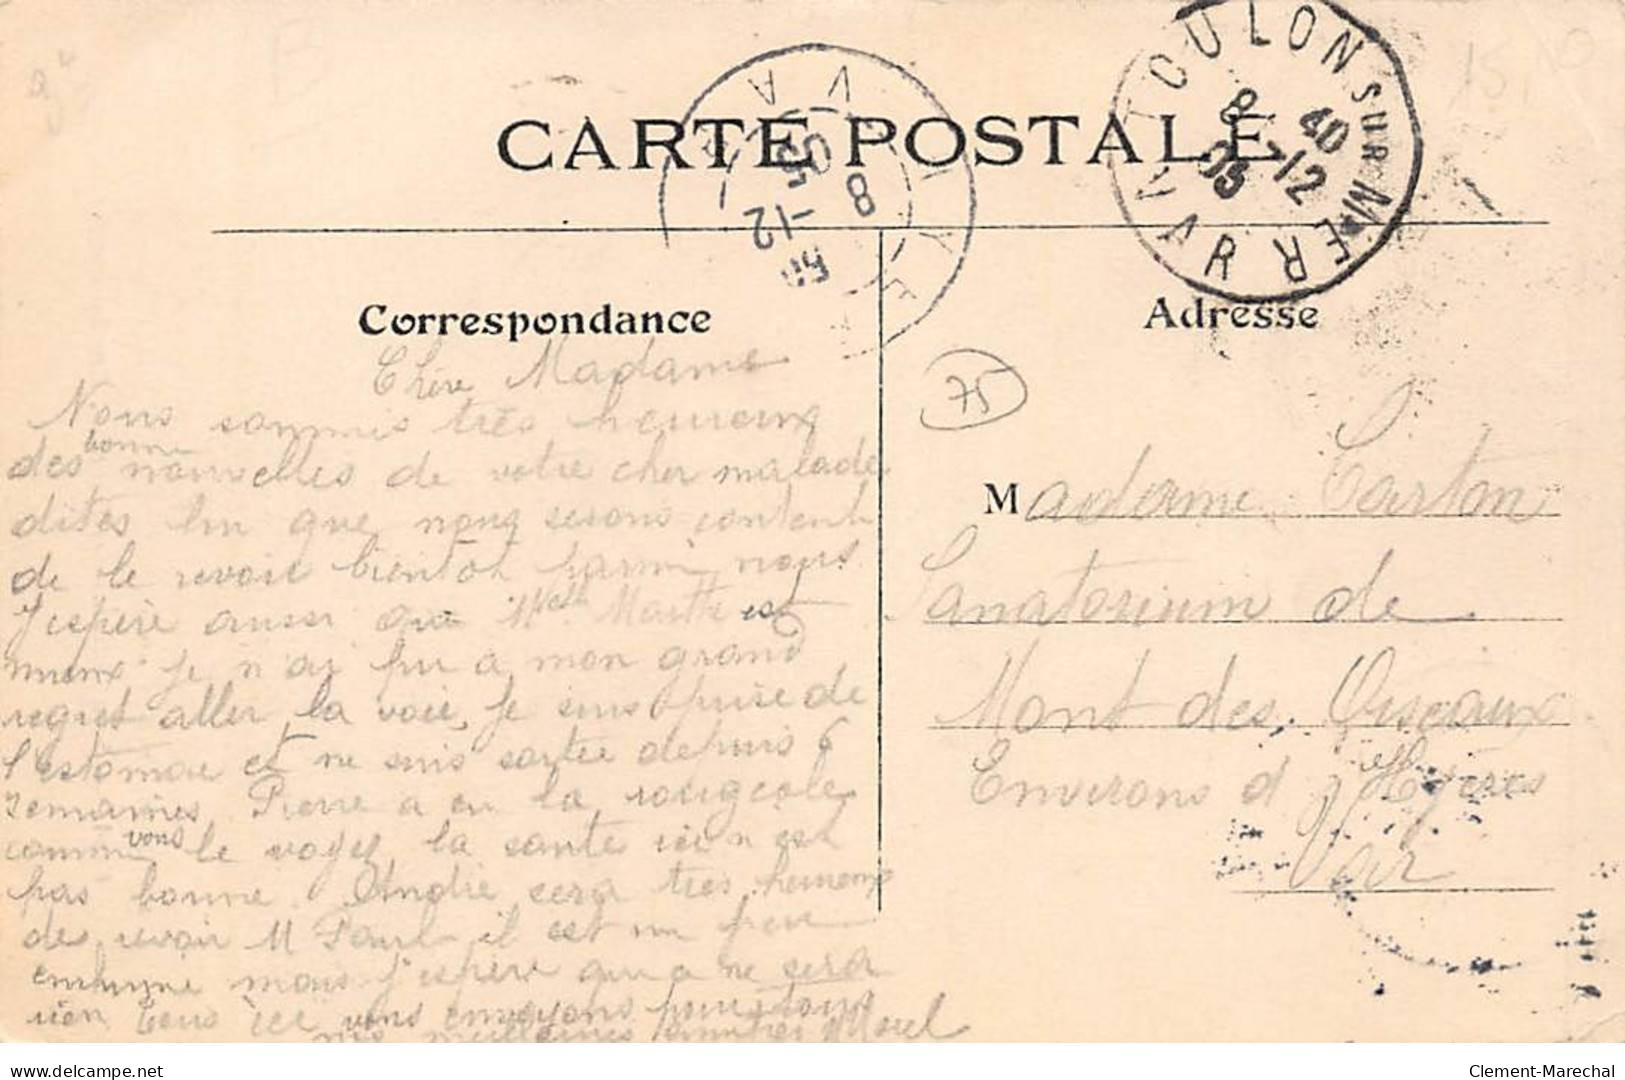 CARTE POSTALE
TOULON SUR MER
VAR
8 40
7-12
05
HYERES
VAR
8 -12
05
Correspondance
Adresse
75
15,10
Chère Madame
Nous sommes très heureux
des bonne nouvelles de votre cher malade
dites lui que nous serons content
de le revoir bientôt parmi nous
J'espère aussi que Melle Marthe est
mieux je n'ai pu à mon grand
regret aller la voir, je suis prise de
l'estomac et ne suis sortie depuis 6
semaines. Pierre a eu la rougeole
comme vous le voyez la santé ici n'est
pas bonne. André sera très heureux
de revoir M Paul il est un peu
enrhumé mais j'espère que ça ne sera
rien tous ici vous envoyons pour tous
nos meilleures amitiés Morel
Madame Carton
Sanatorium de
Mont des Oiseaux
Environs d'Hyères
Var
delcampe.net
Clement-Marechal